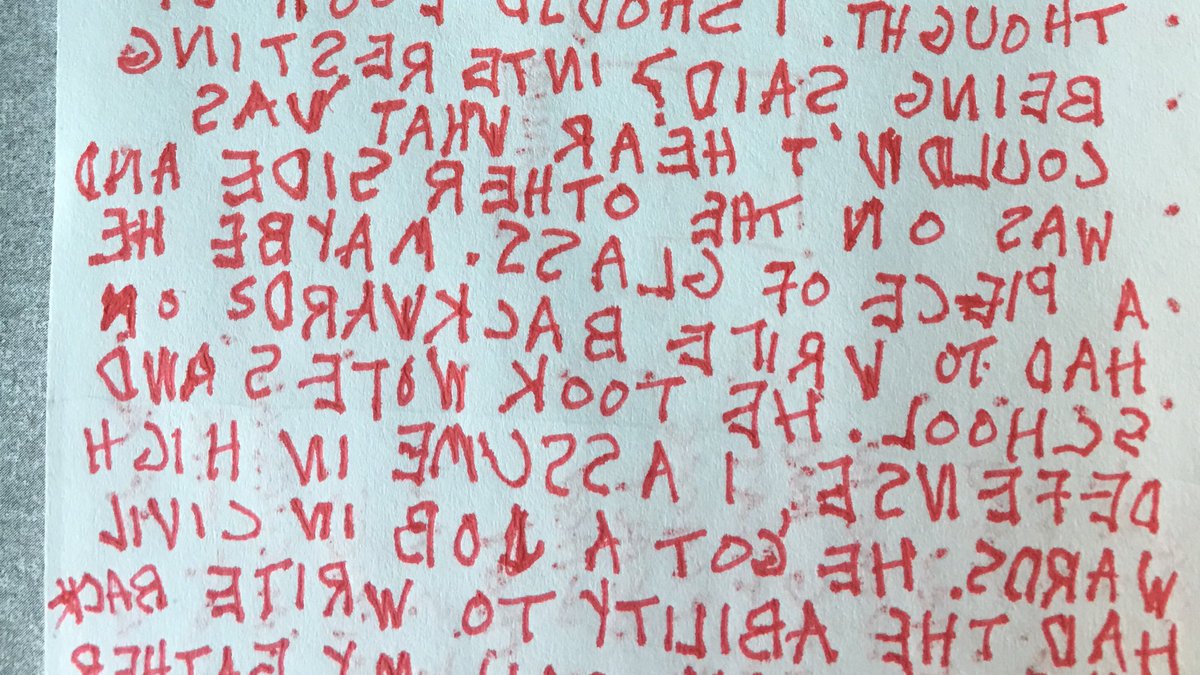 MY FATHER
HAD THE ABILITY TO WRITE BACK
WARDS. HE GOT A JOB IN CIVIL
DEFENSE, I ASSUME IN HIGH
SCHOOL. HE TOOK NOTES AND
HAD TO WRITE BACKWARDS ON
A PIECE OF GLASS. MAYBE HE
WAS ON THE OTHER SIDE AND
COULDN'T HEAR WHAT WAS
BEING SAID? INTERESTING
THOUGHT. I SHOULD